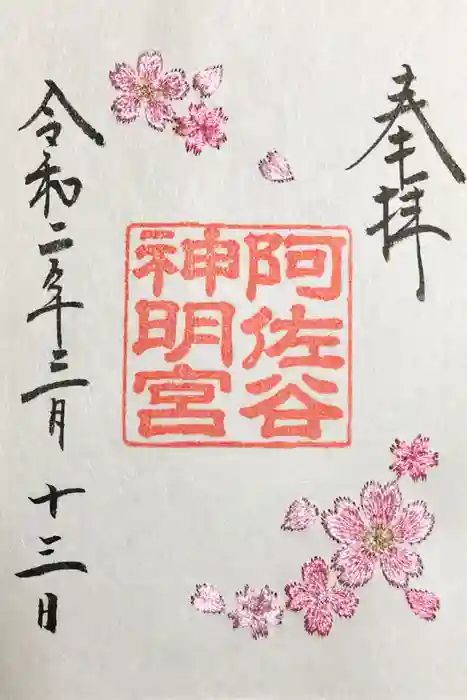 奉拝
阿佐谷
神明宮
令和二年三月十三日